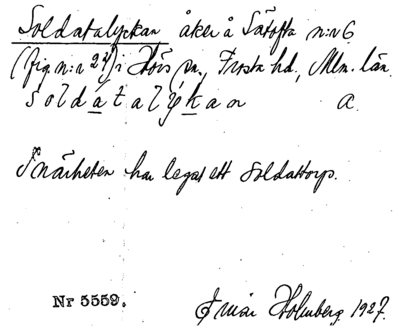 Soldatalyckan åker å Sätofta n:r 6
(fig. n:r 24) i Hörs sn., Frosta hd., Mlm. län.
soldatalykan a.
I närheten har legat ett soldattorp.
Nr 5559. Ingvar Holmberg 1927.